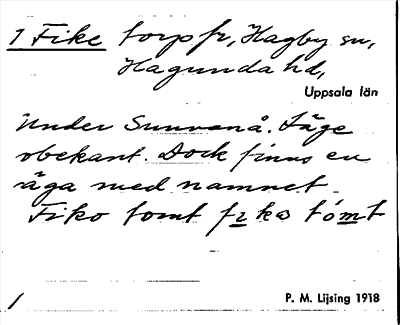 1 Fike torp fr, Hagby sn,
Hagunda hd,
Uppsala län
Under Sunnanå. Läge
obekant. Dock finns en
äga med namnet
Fiko tomt
P. M. Lijsing 1918
/